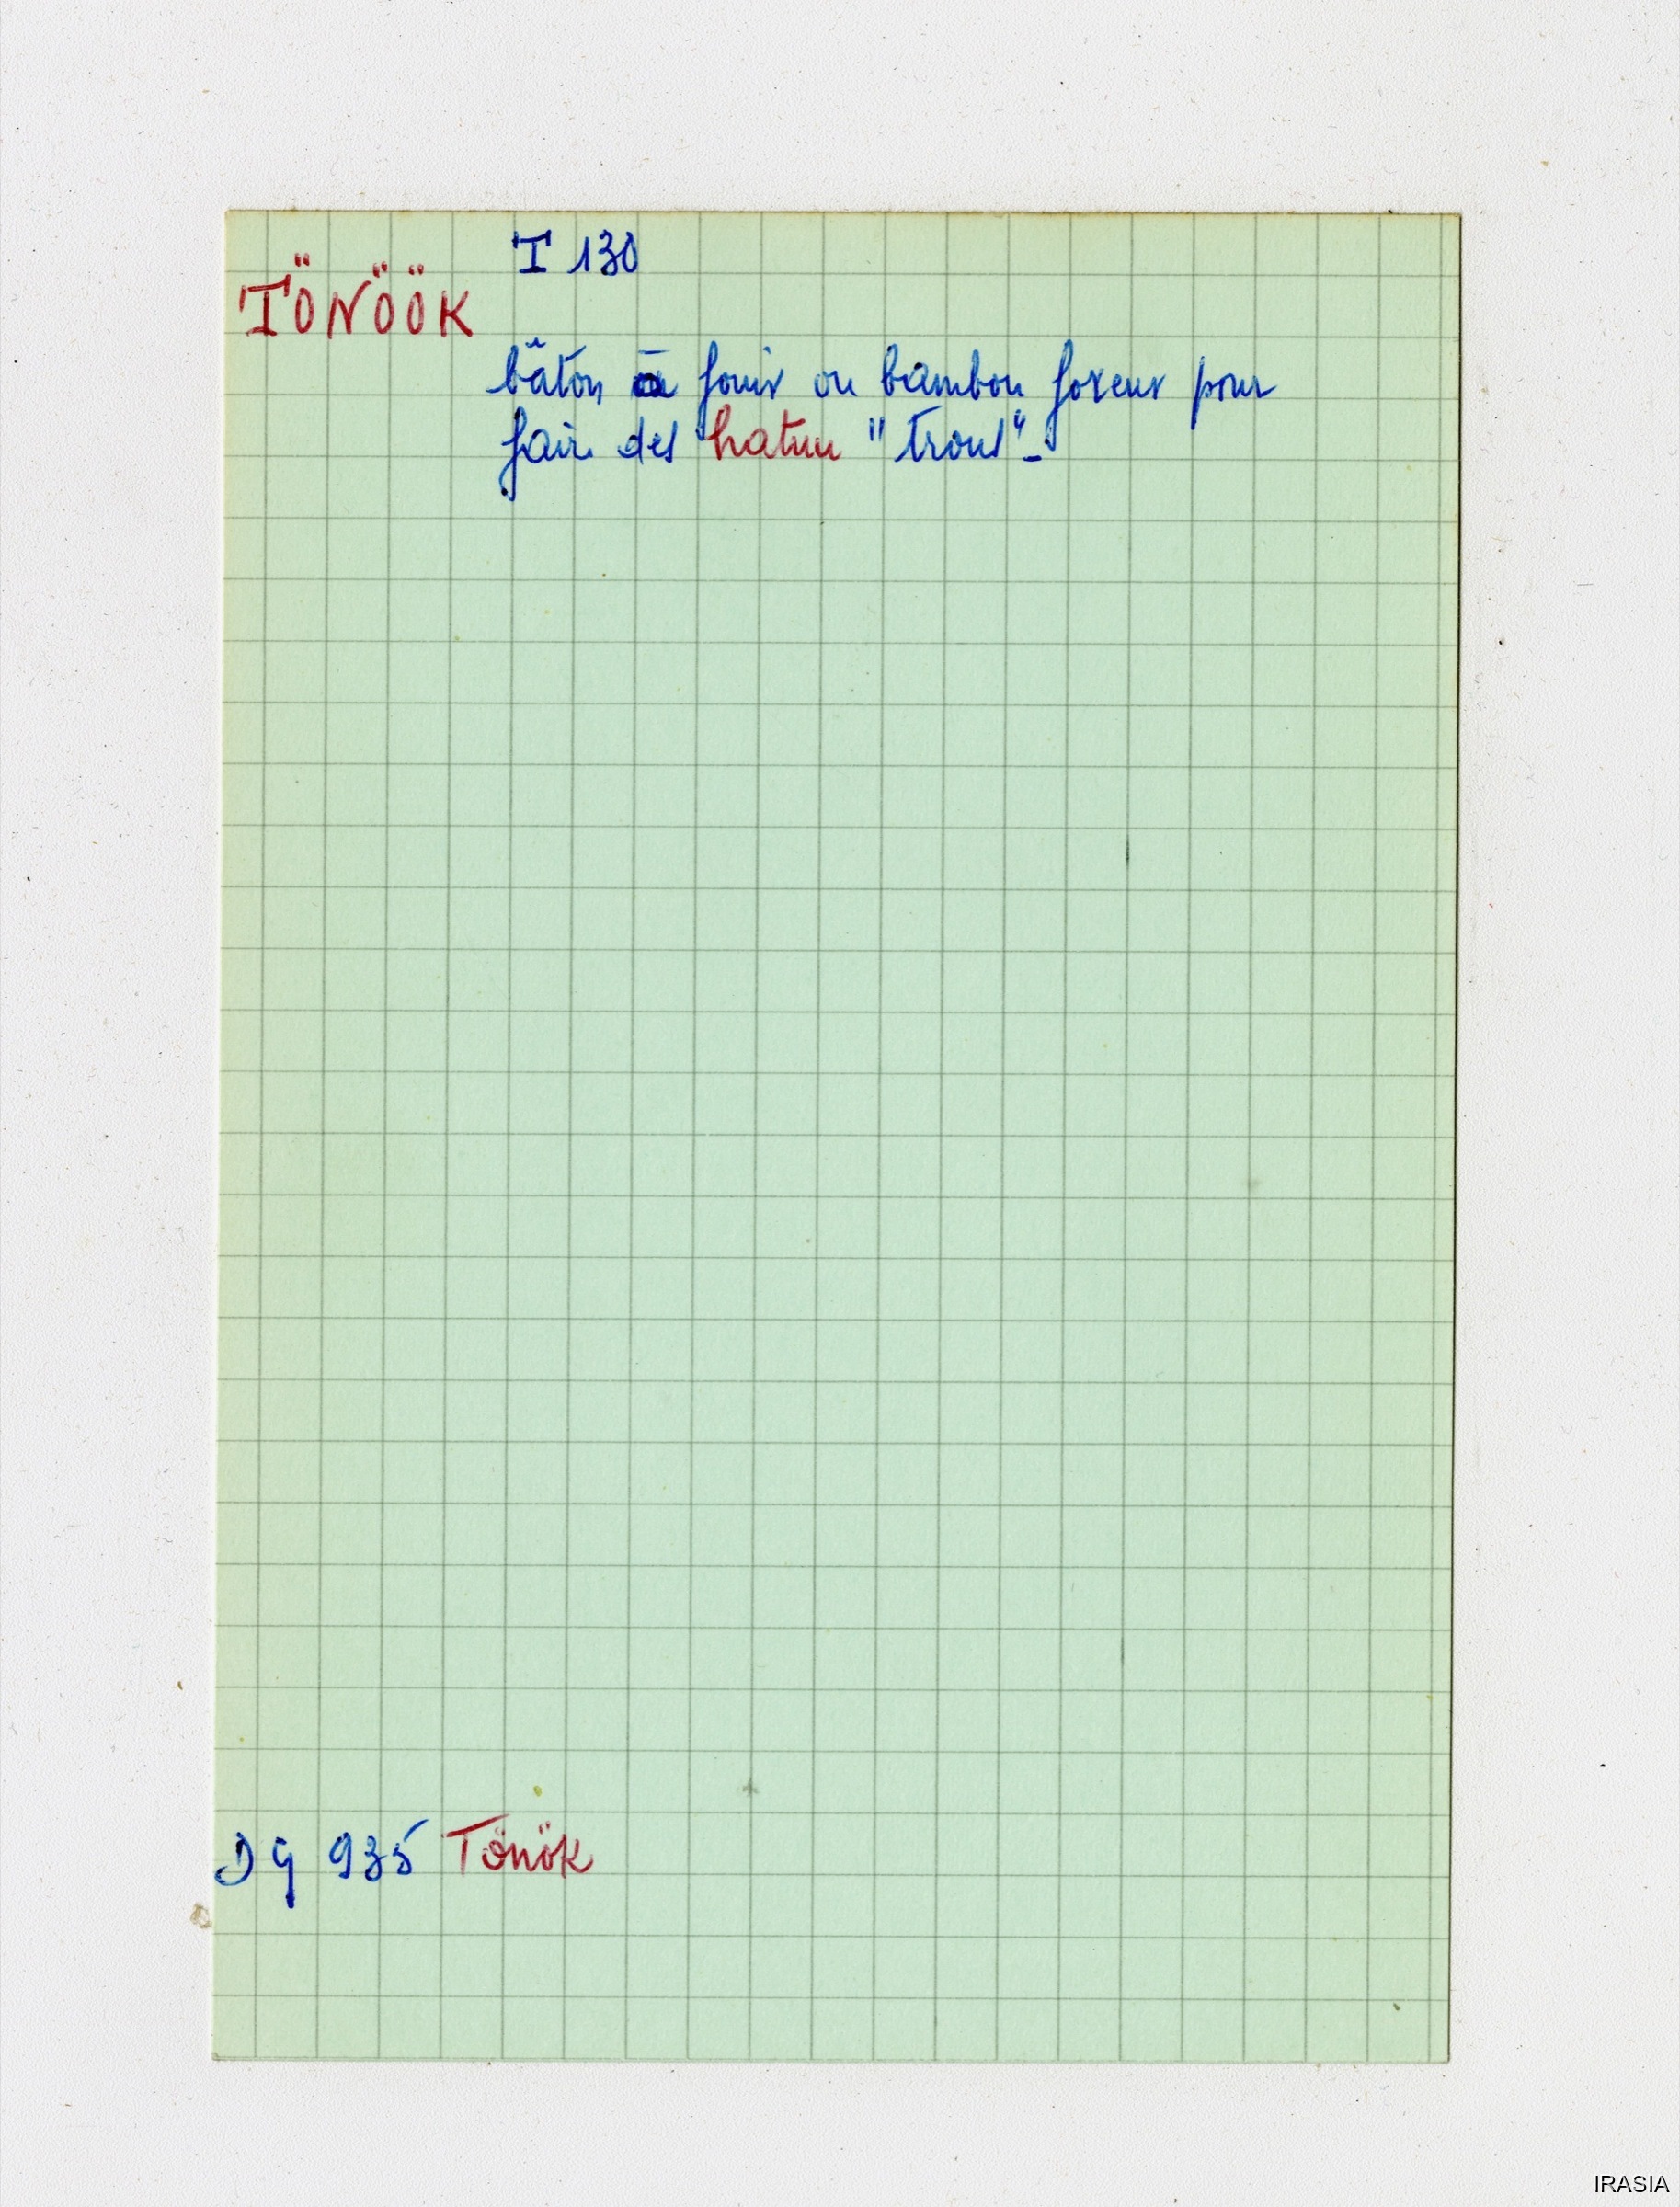 T 130
TÖNÖÖK
bâton à fouir ou bambou foreur pour
faire des hatuu "trous"-
DG 935 Tönök
IRASIA